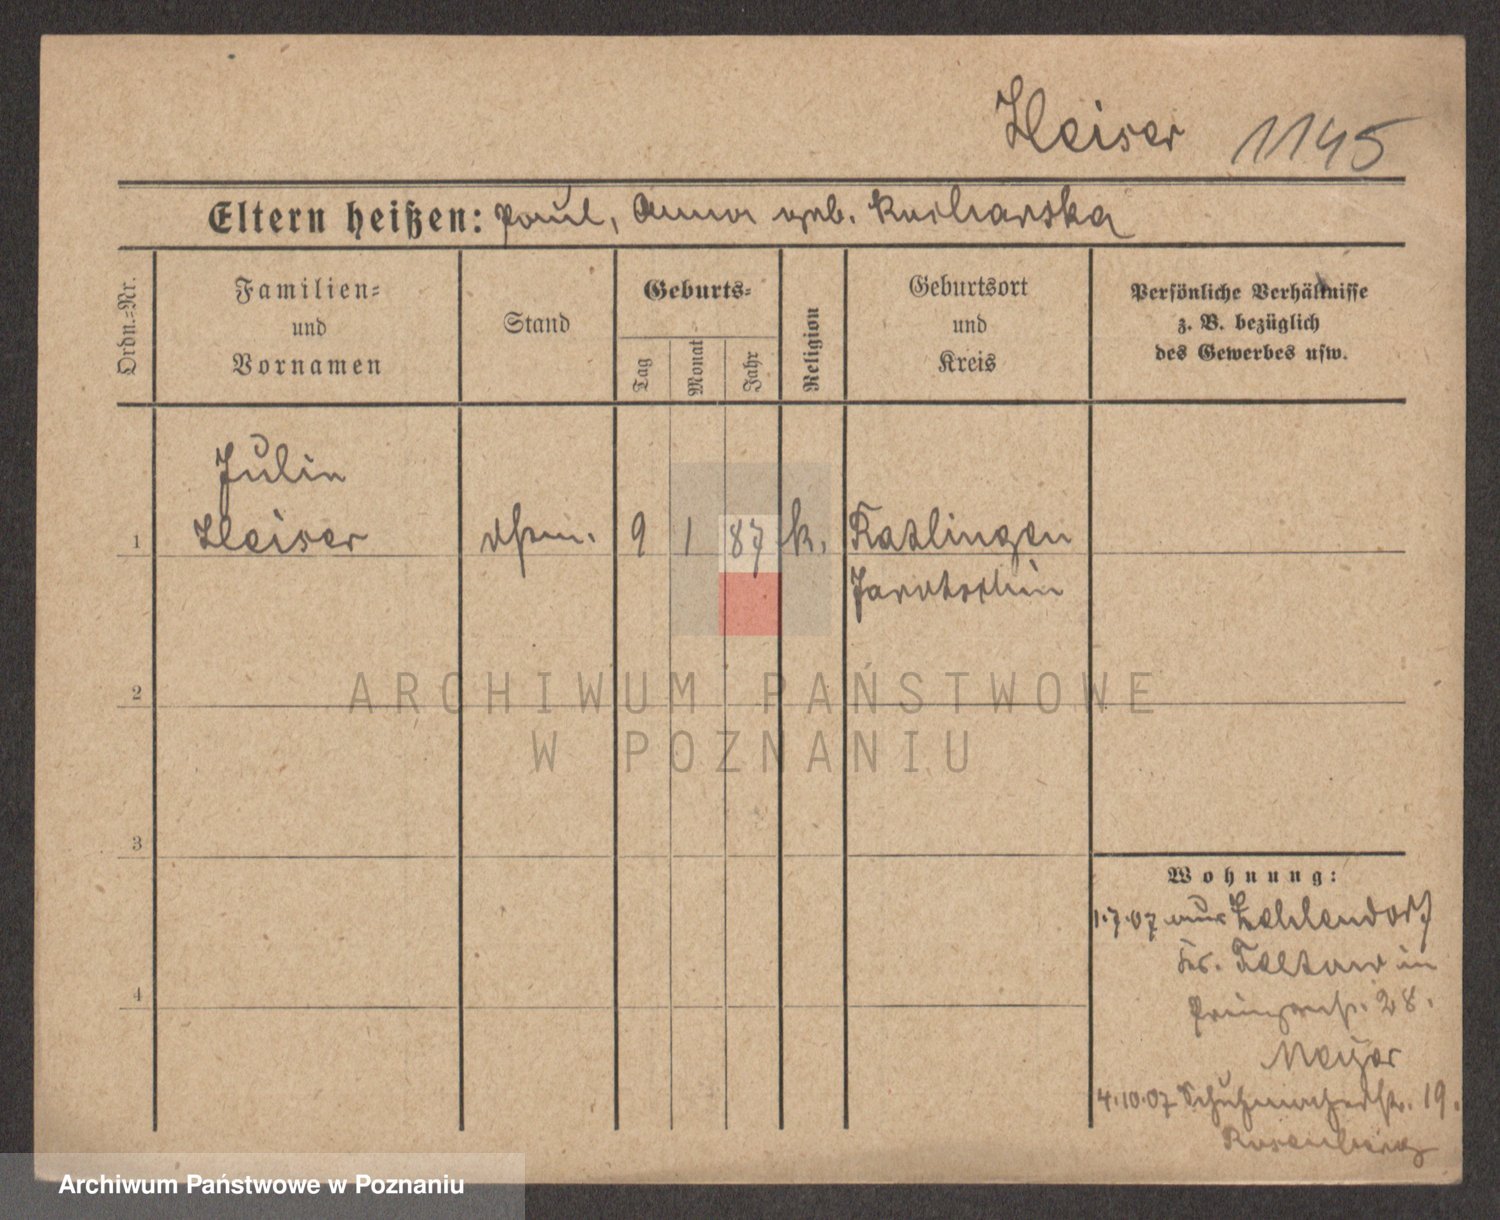 Heiser 1145
Eltern heißen: Paul, Anna geb. Kucharska
Ordn.=Nr.
Familien=
und
Vornamen
Stand
Geburts=
Tag
Monat
Jahr
Religion
Geburtsort
und
Kreis
Persönliche Verhältnisse
z. B. bezüglich
des Gewerbes usw.
Julia
1 Heiser 9 1 87 k. Katlingen
Jarotschin
2
3
4
Wohnung:
1.7.07 aus Zehlendorf
Kr. Teltow in
28.
Meyer
4.10.07 Schuhmacherstr. 19.
Rosenberg
ARCHIWUM PAŃSTWOWE
W POZNANIU
Archiwum Państwowe w Poznaniu